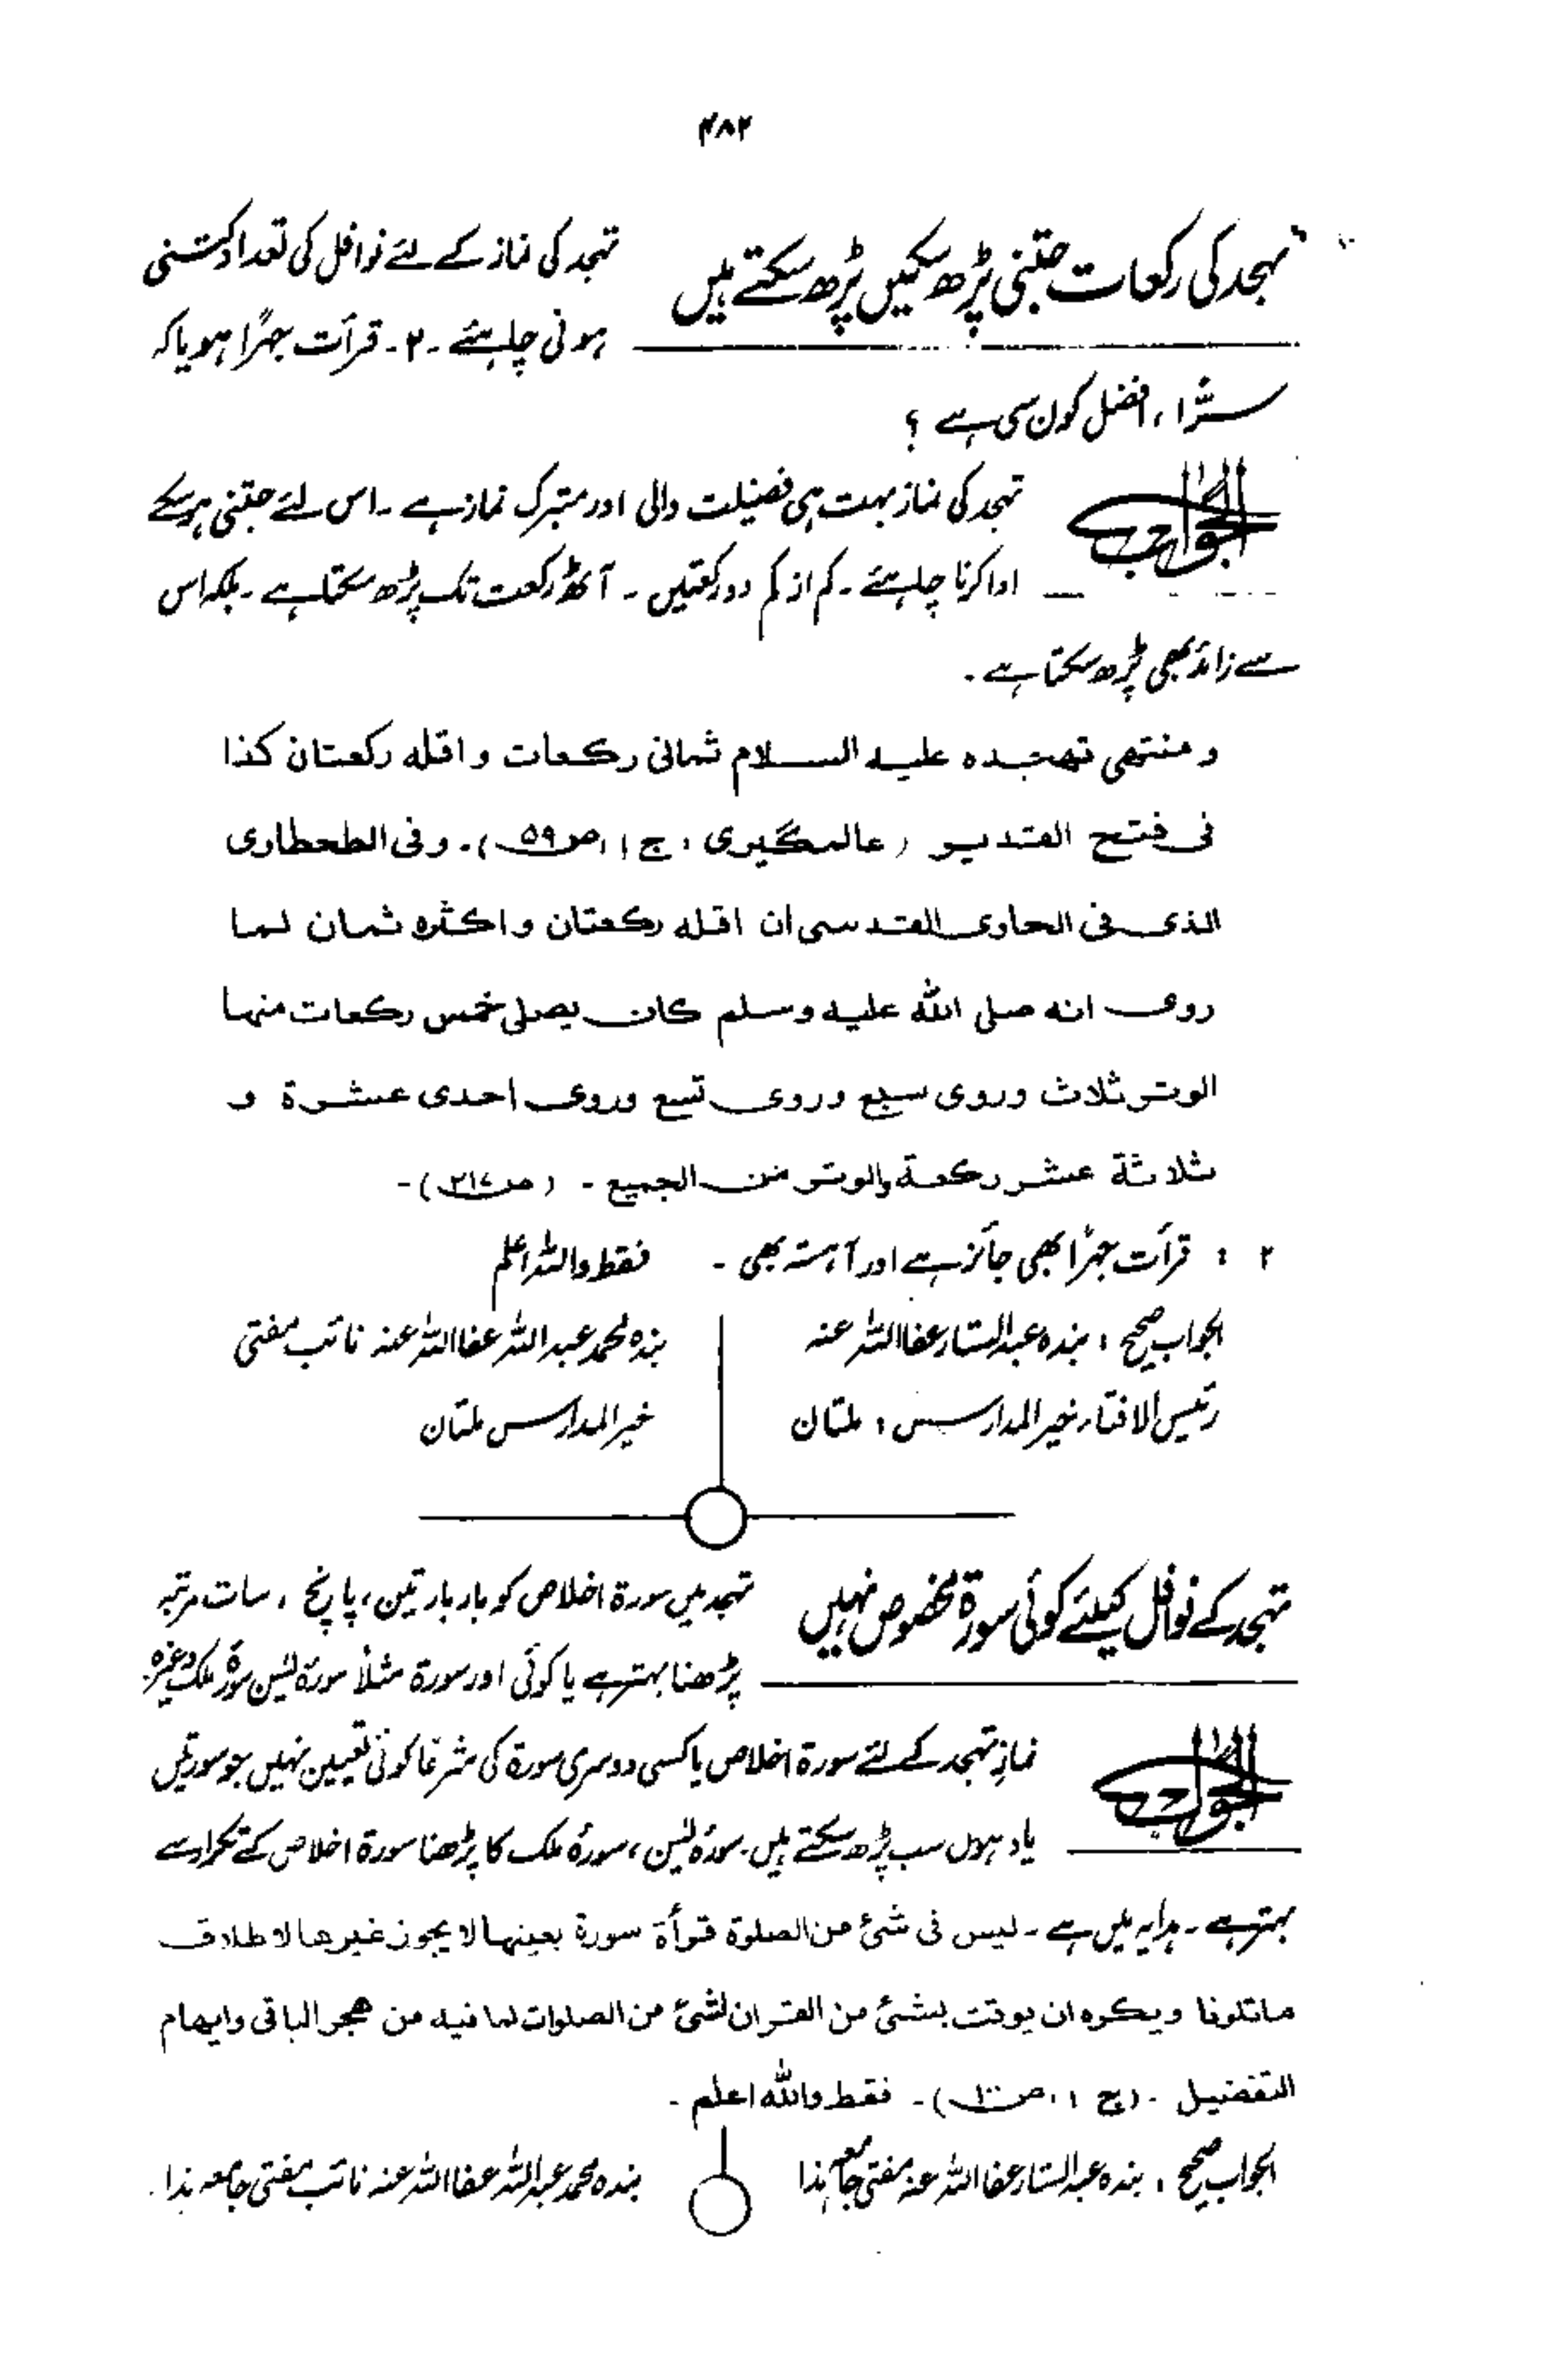 ۴۸۲
تہجد کی رکعات جتنی پڑھ سکیں پڑھ سکتے ہیں
تہجد کی نماز کے لئے نوافل کی تعداد کتنی
ہونی چاہئے ۔ ۲۔ قرأت جہرًا ہو یا کہ
سرًّا ، افضل کون سی ہے ؟
الجواب
تہجد کی نماز بہت ہی فضیلت والی اور متبرک نماز ہے ۔ اس لئے جتنی ہوسکے
ادا کرنا چاہئے ۔ کم از کم دو رکعتیں ۔ آٹھ رکعت تک پڑھ سکتا ہے ۔ بلکہ اس
سے زائد بھی پڑھ سکتا ہے ۔
و منتهى تهجده عليه السلام ثمانى ركعات و اقله ركعتان كذا
فى فتح القدير (عالمگیری ، ج ۱ ، ص ۵۹) ۔ وفى الطحطاوى
الذى فى الحاوى القدسى ان اقله ركعتان و اكثره ثمان لما
روى انه صلى الله عليه وسلم كان يصلى خمس ركعات منها
الوتر ثلاث وروى سبع وروى تسع وروى احدى عشرة و
ثلاثة عشر ركعة والوتر من الجميع ۔ (ص ۲۱۷) ۔
۲ : قرأت جہرًا بھی جائز ہے اور آہستہ بھی ۔ فقط واللہ اعلم
الجواب صحیح ، بندہ عبدالستار عفا اللہ عنہ
رئیس الافتاء خیر المدارس ، ملتان
بندہ محمد عبد اللہ عفا اللہ عنہ نائب مفتی
خیر المدارس ملتان
تہجد کے نوافل کیلئے کوئی سورۃ مخصوص نہیں
تہجد میں سورۃ اخلاص کو بار بار تین ، پانچ ، سات مرتبہ
پڑھنا بہتر ہے یا کوئی اور سورۃ مثلاً سورۃ یٰسین سورۃ ملک وغیرہ
الجواب
نمازِ تہجد کے لئے سورۃ اخلاص یا کسی دوسری سورۃ کی شرعًا کوئی تعیین نہیں جو سورتیں
یاد ہوں سب پڑھ سکتے ہیں ۔ سورۂ یٰسین ، سورۂ ملک کا پڑھنا سورۃ اخلاص کے تکرار سے
بہتر ہے ۔ ہدایہ میں ہے ۔ ليس فى شئ من الصلوة قرأة سورة بعينها لا يجوز غيرها لاطلاق
ماتلونا ويكره ان يوقت بشئ من القران لشئ من الصلوات لما فيه من هجر الباقى وايهام
التفضيل ۔ (ج ۱ ، ص ۱۰۰) ۔ فقط واللہ اعلم ۔
الجواب صحیح ، بندہ عبدالستار عفا اللہ عنہ مفتی جامعہ ہذا
بندہ محمد عبداللہ عفا اللہ عنہ نائب مفتی جامعہ ہذا ۔